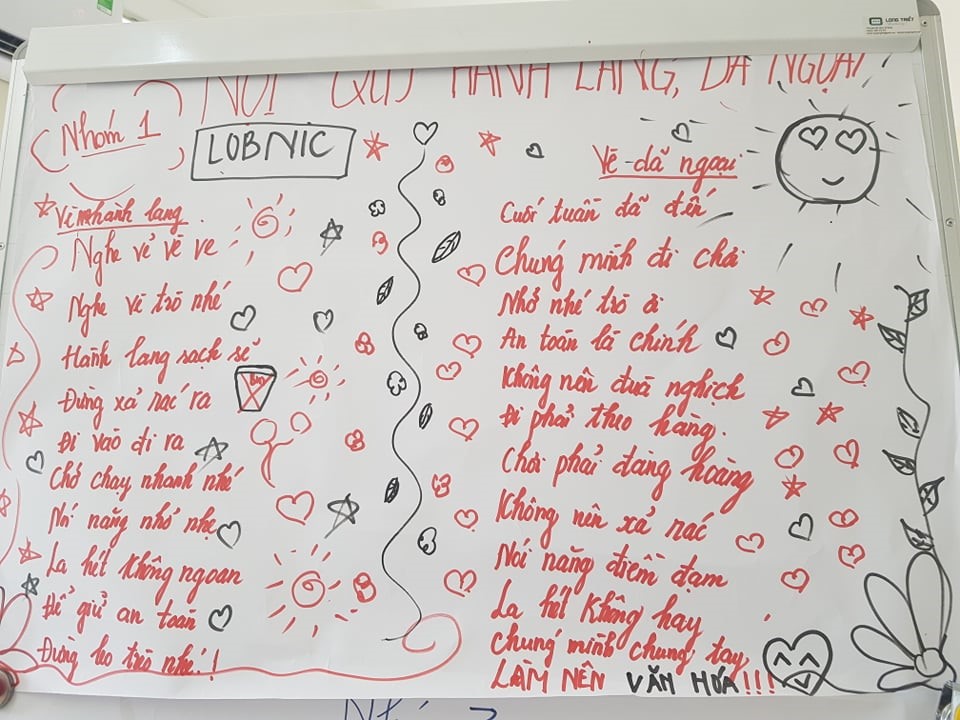 LONG TRIẾT
NỘI QUY HÀNH LANG, DÃ NGOẠI
Nhóm 1
LOBNIC
Vè hành lang.
Nghe vẻ vè ve
Nghe vè trò nhé
Hành lang sạch sẽ
Đừng xả rác ra
Đi vào đi ra
Chớ chạy nhanh nhé
Nói năng nhỏ nhẹ
La hét không ngoan
Để giữ an toàn
Đừng leo trèo nhé!!
Vè dã ngoại
Cuối tuần đã đến
Chúng mình đi chơi
Nhớ nhé trò ơi
An toàn là chính
Không nên đùa nghịch
Đi phải theo hàng.
Chơi phải đàng hoàng
Không nên xả rác
Nói năng điềm đạm
La hét không hay
Chúng mình chung tay
LÀM NÊN VĂN HÓA!!!